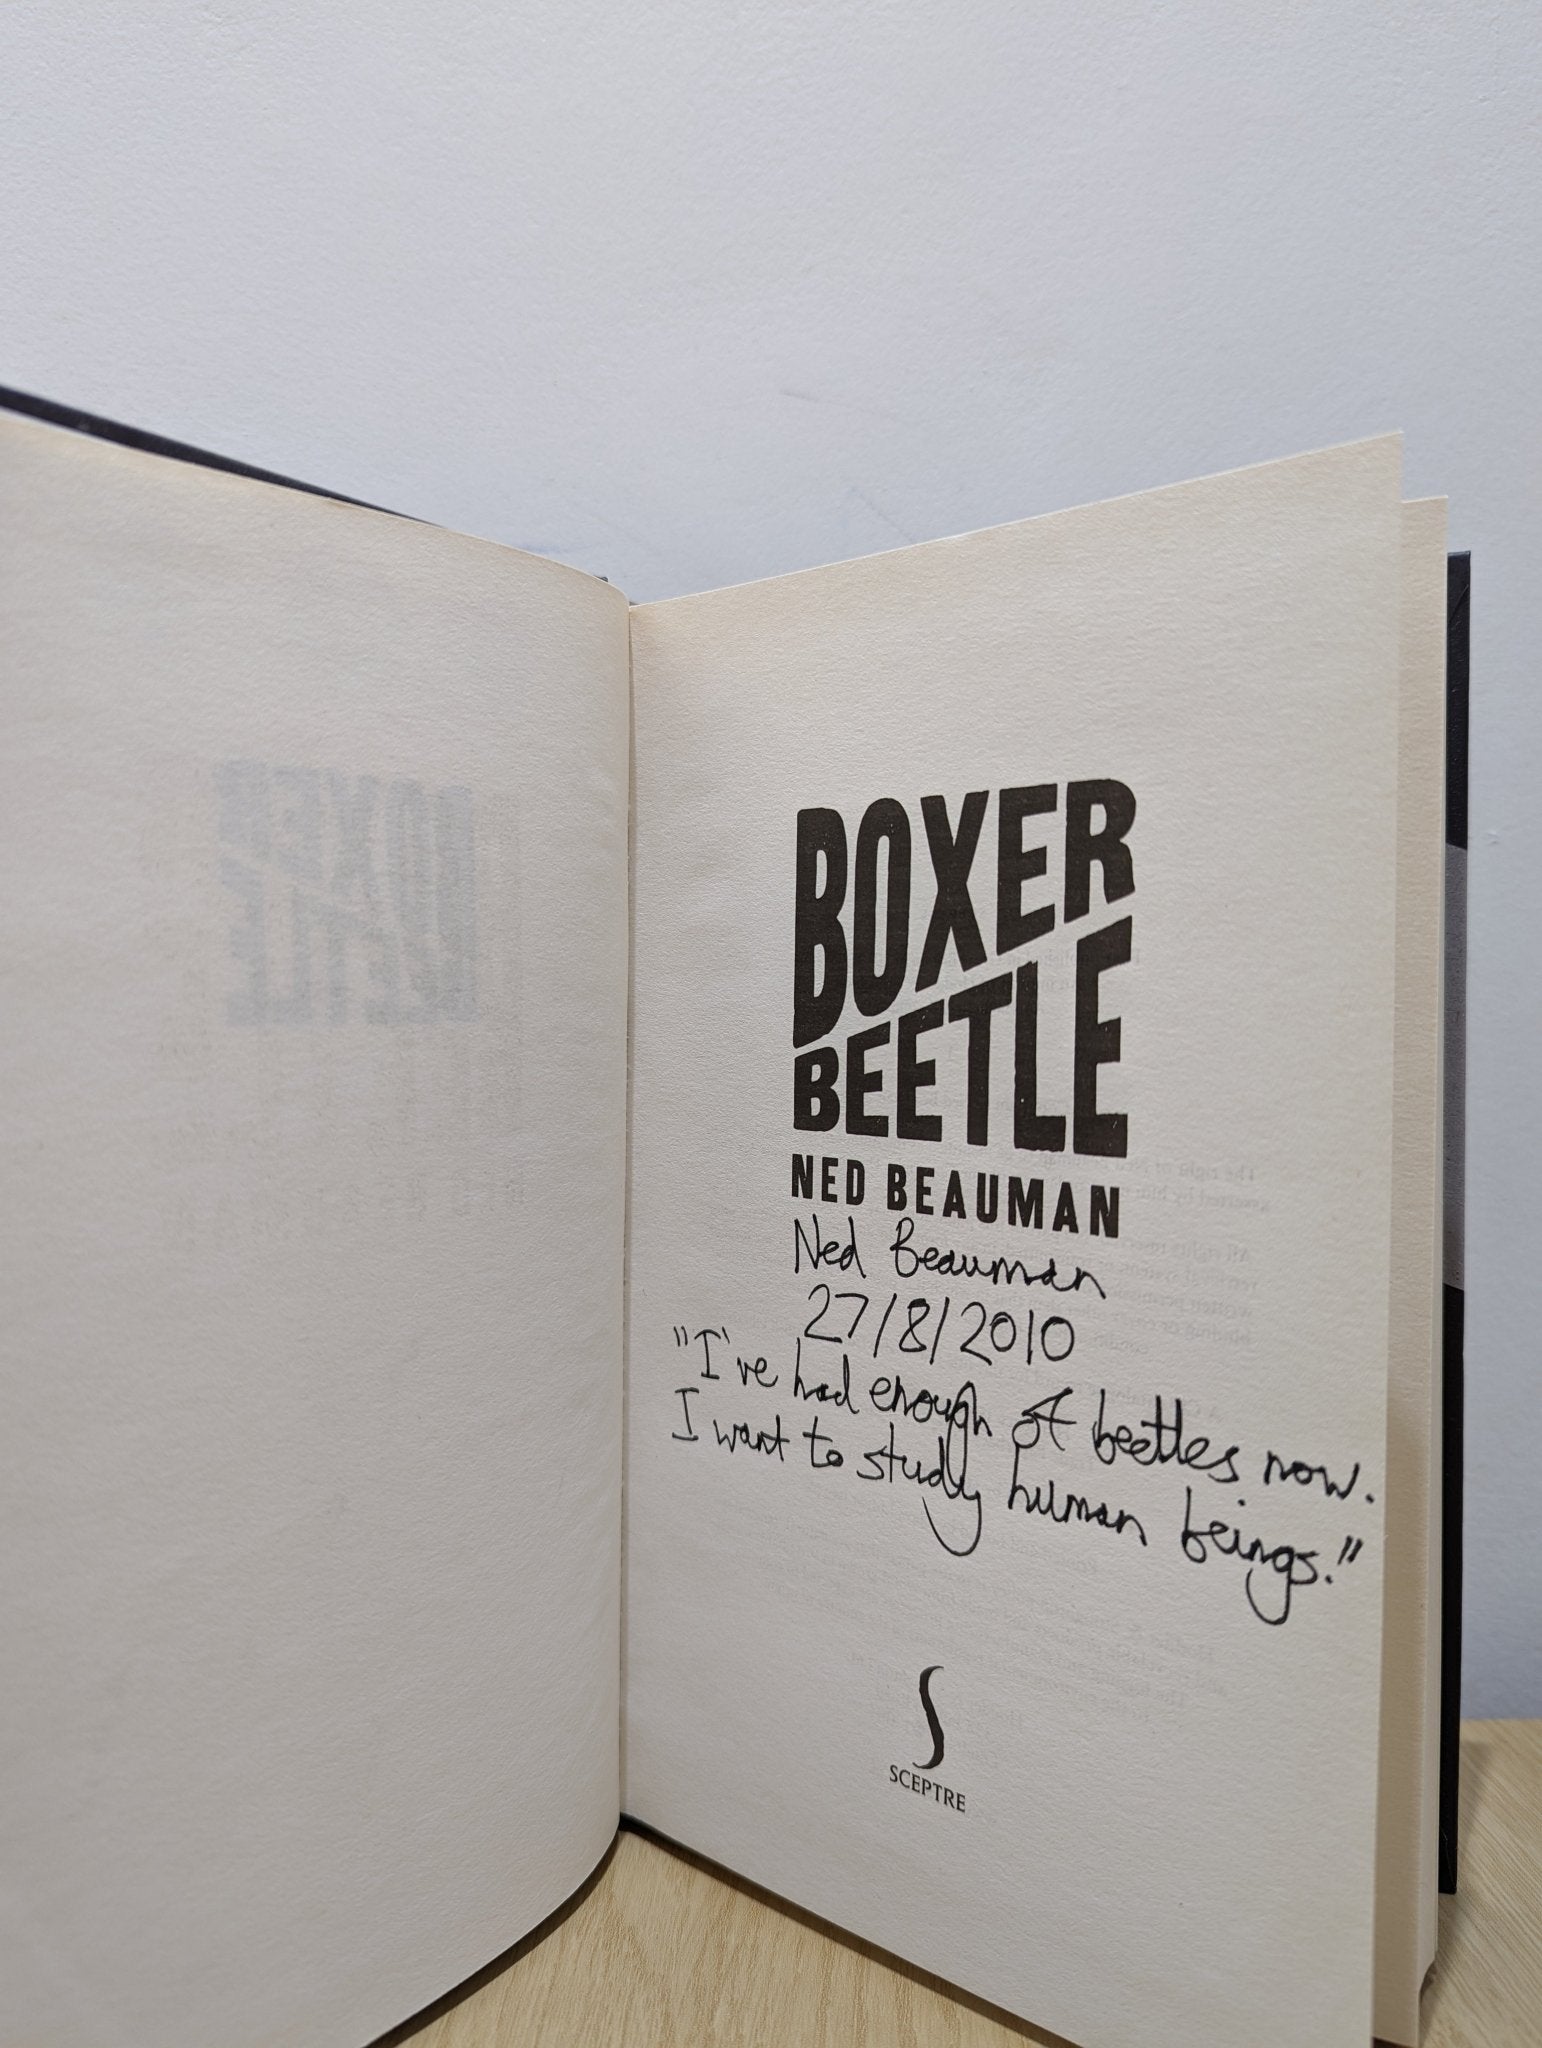 BOXER
BEETLE
NED BEAUMAN
Ned Beauman
27/8/2010
"I've had enough of beetles now.
I want to study human beings."
SCEPTRE